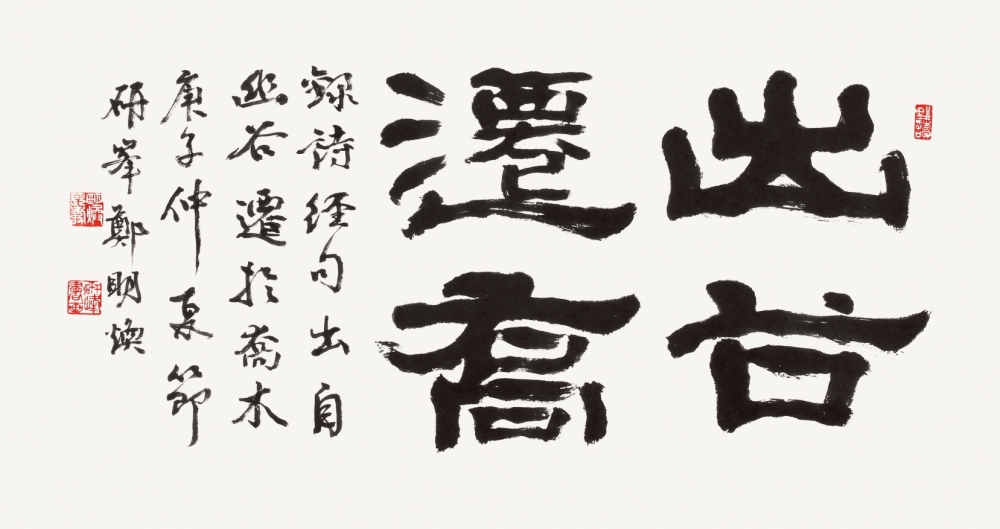 出谷
遷喬
錄詩經句出自
幽谷遷於喬木
庚子仲夏節
硏峯鄭明煥